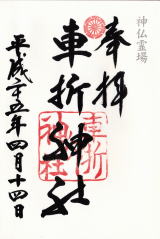 神仏霊場
奉拝
車折神社
車折神社
平成二十五年四月十四日